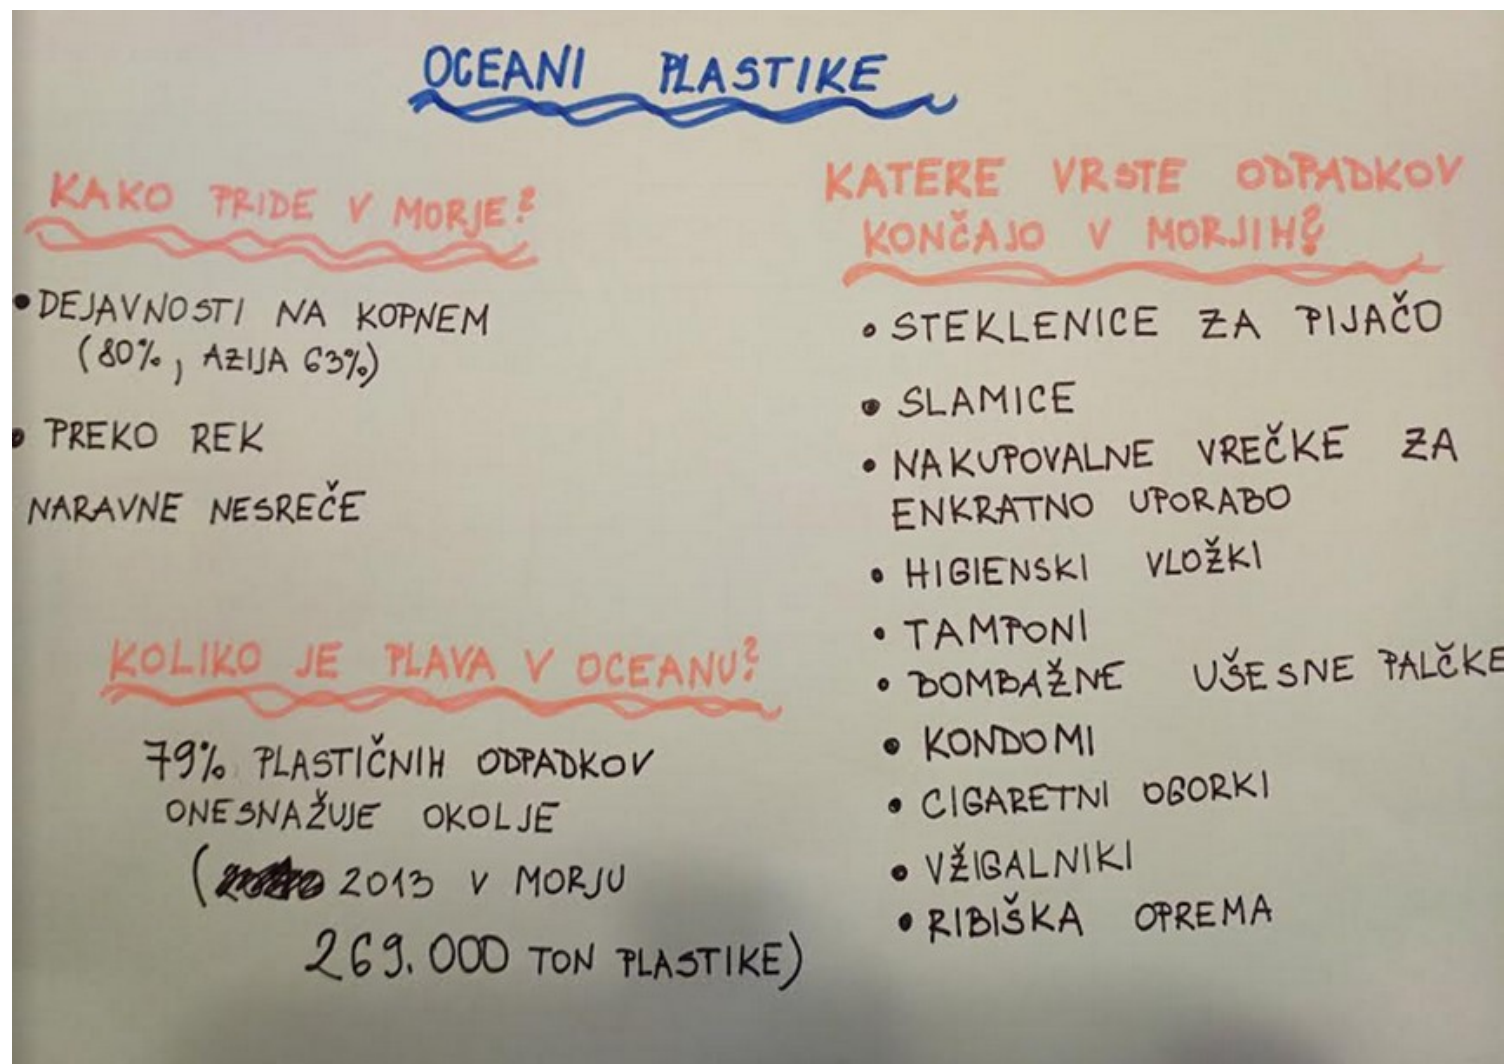 OCEANI PLASTIKE
KAKO PRIDE V MORJE?
• DEJAVNOSTI NA KOPNEM
(80%, AZIJA 63%)
• PREKO REK
NARAVNE NESREČE
KOLIKO JE PLAVA V OCEANU?
79% PLASTIČNIH ODPADKOV
ONESNAŽUJE OKOLJE
( 2013 V MORJU
269.000 TON PLASTIKE)
KATERE VRSTE ODPADKOV
KONČAJO V MORJIH?
• STEKLENICE ZA PIJAČO
• SLAMICE
• NAKUPOVALNE VREČKE ZA
ENKRATNO UPORABO
• HIGIENSKI VLOŽKI
• TAMPONI
• BOMBAŽNE UŠESNE PALČKE
• KONDOMI
• CIGARETNI OGORKI
• VŽIGALNIKI
• RIBIŠKA OPREMA